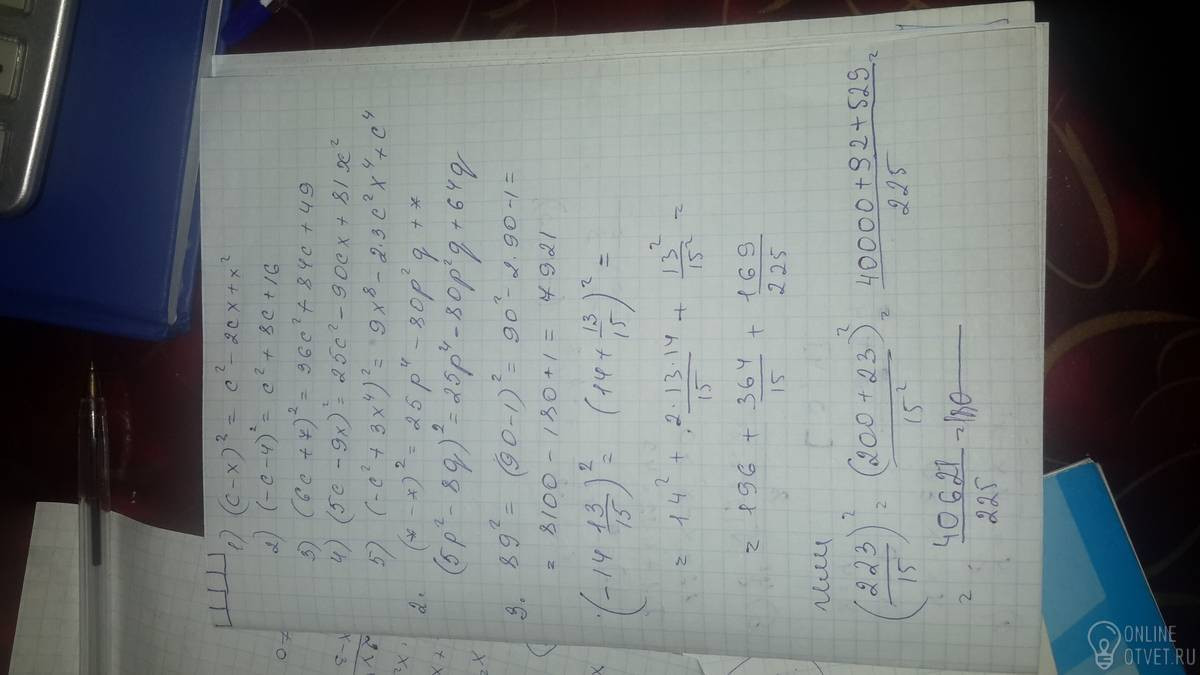 1) (c-x)² = c² - 2cx + x²
2) (-c-4)² = c² + 8c + 16
3) (6c+7)² = 36c² + 84c + 49
4) (5c-9x)² = 25c² - 90cx + 81x²
5) (-c²+3x⁴)² = 9x⁸ - 2·3c²x⁴ + c⁴
2. (*-x)² = 25p⁴ - 80p²q + *
(5p² - 8q)² = 25p⁴ - 80p²q + 64q
3. 89² = (90-1)² = 90² - 2·90·1 =
= 8100 - 180 + 1 = 7921
(-14 13/15)² = (14 + 13/15)² =
= 14² + 2·13·14/15 + 13²/15² =
= 196 + 364/15 + 169/225
или
(223/15)² = (200+23)²/15² = 40000+92+529/225 =
= 40621/225 =
ONLINE
OTVET.RU